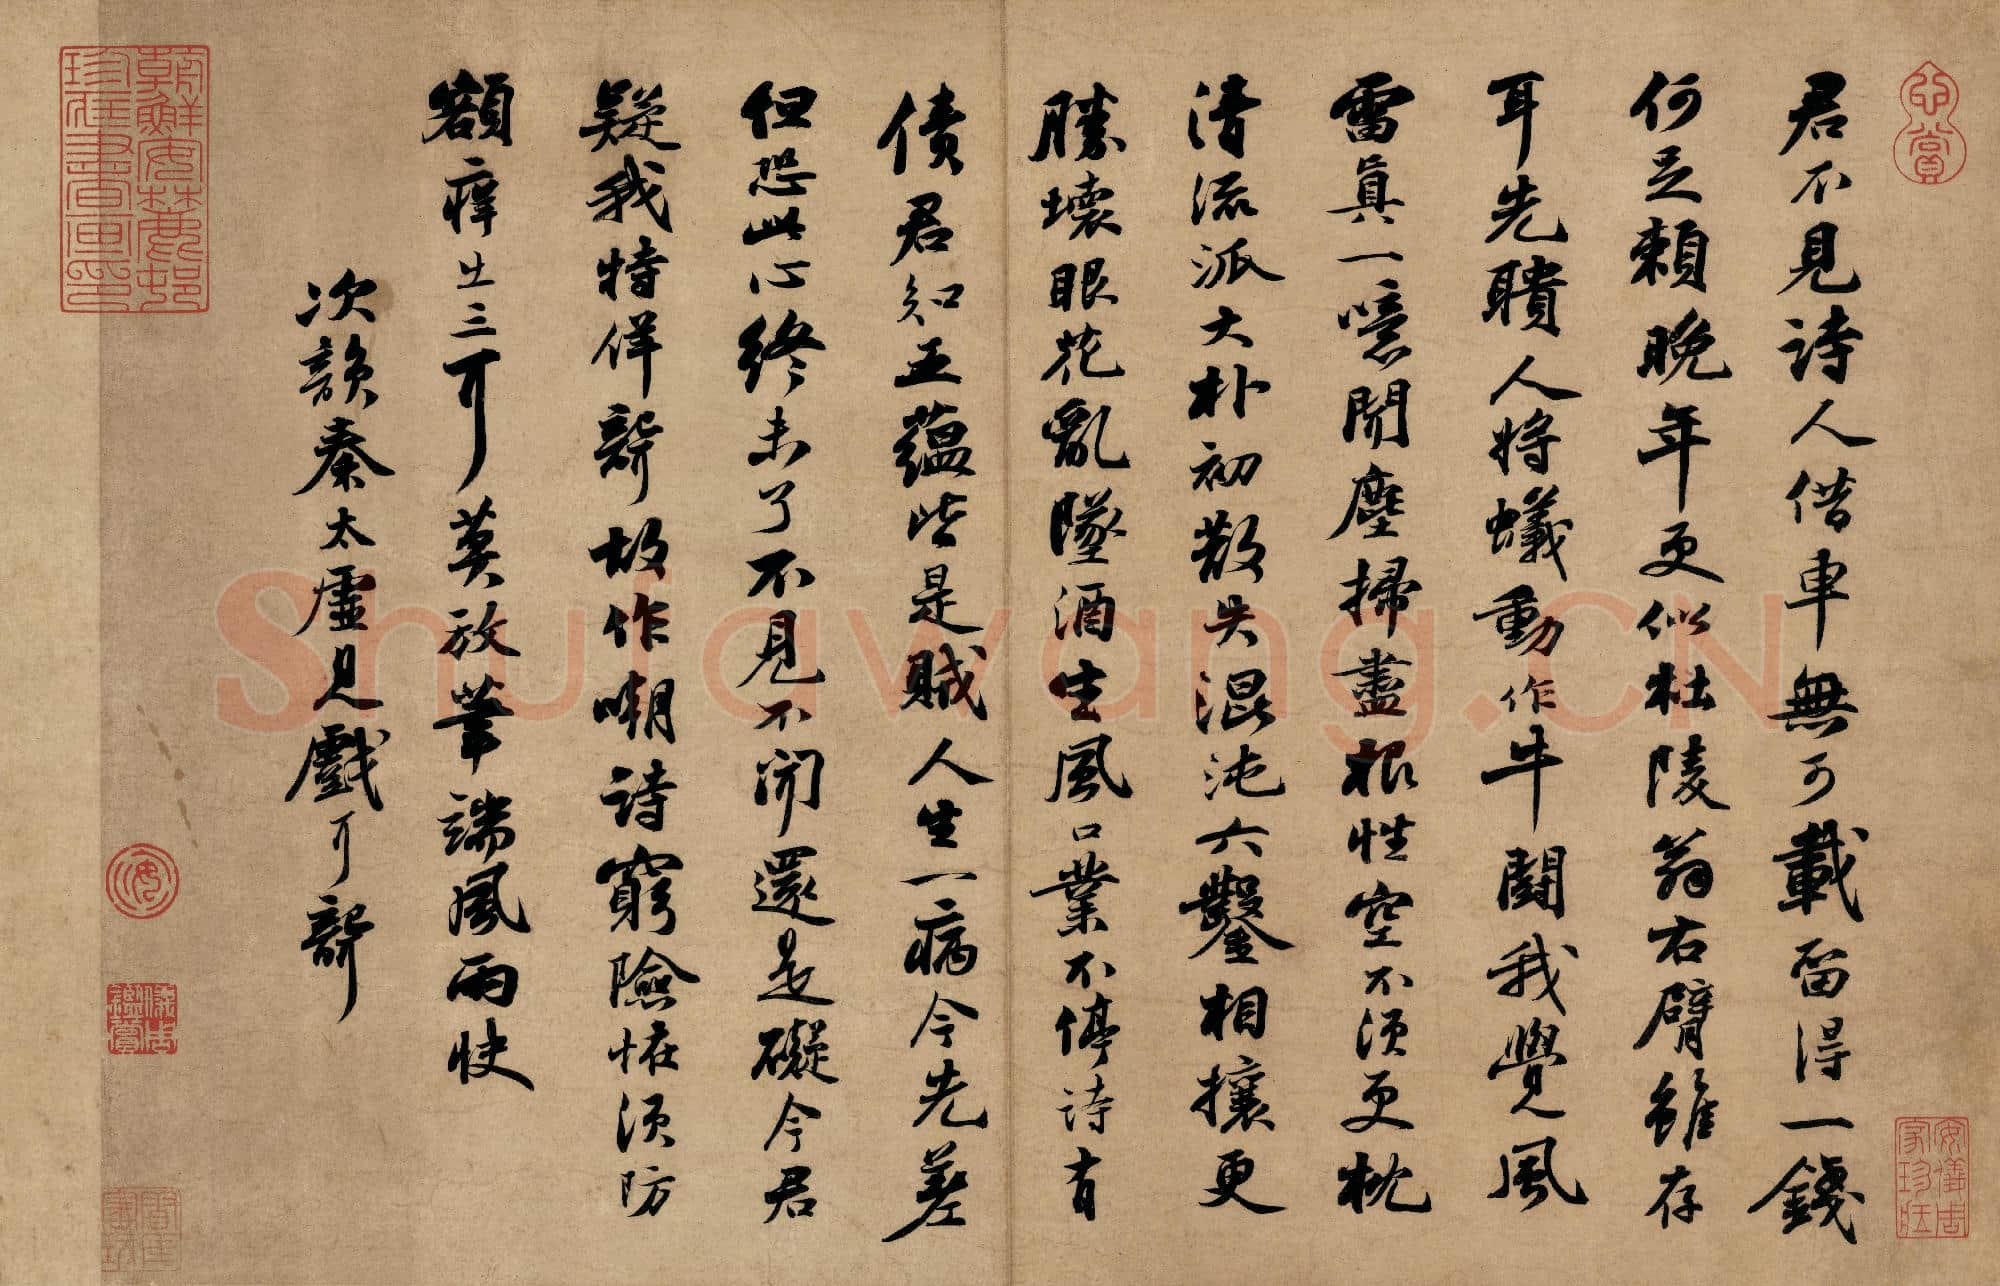 心賞
安儀周家珍藏
君不見詩人借車無可載留得一錢
何足賴晚年更似杜陵翁右臂雖存
耳先聵人將蟻動作牛鬪我覺風
雷真一噫聞塵掃盡根性空不須更枕
清流派大朴初散失混沌六鑿相攘更
勝壞眼花亂墜酒生風口業不停詩有
債君知五蘊皆是賊人生一病今先差
但恐此心終未了不見不聞還是礙今君
疑我特佯聾故作嘲詩窮險怪須防
額癢出三耳莫放筆端風雨快
次韻秦太虛見戲耳聾
朝鮮安麓邨珍藏書畫印
安
儀周鑑賞
Shufawang.CN